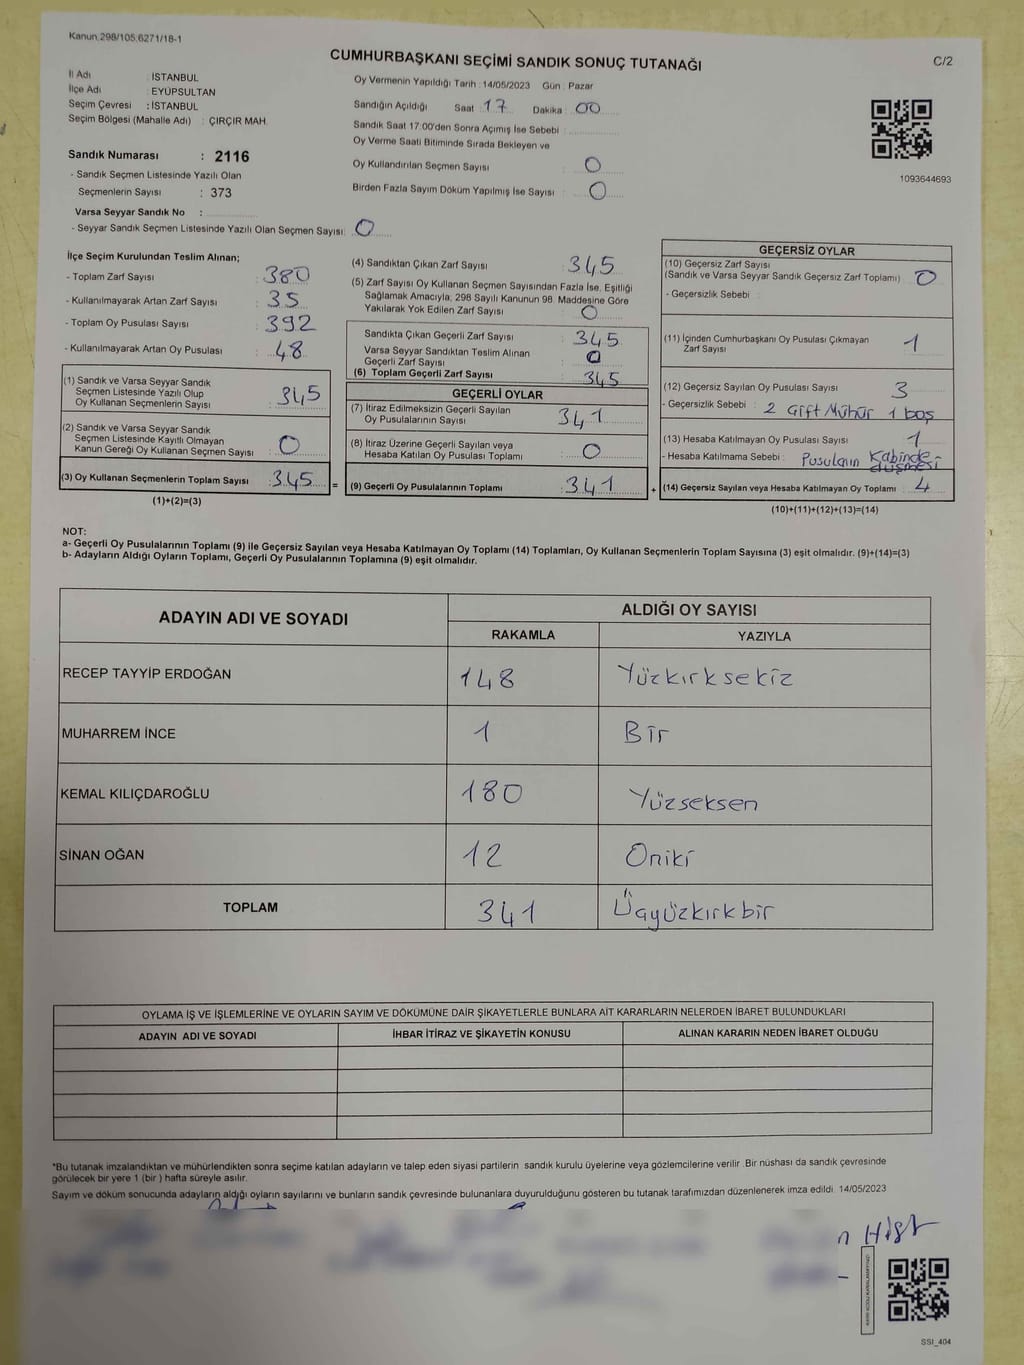 Kanun.298/105.6271/18-1
CUMHURBAŞKANI SEÇİMİ SANDIK SONUÇ TUTANAĞI
C/2
İl Adı : İSTANBUL
İlçe Adı : EYÜPSULTAN
Seçim Çevresi : İSTANBUL
Seçim Bölgesi (Mahalle Adı) : ÇIRÇIR MAH.
Sandık Numarası : 2116
- Sandık Seçmen Listesinde Yazılı Olan
Seçmenlerin Sayısı : 373
Varsa Seyyar Sandık No :
- Seyyar Sandık Seçmen Listesinde Yazılı Olan Seçmen Sayısı: 0
Oy Vermenin Yapıldığı Tarih : 14/05/2023 Gün : Pazar
Sandığın Açıldığı Saat : 17 Dakika : 00
Sandık Saat 17:00'den Sonra Açımış İse Sebebi :
Oy Verme Saati Bitiminde Sırada Bekleyen ve
Oy Kullandırılan Seçmen Sayısı : 0
Birden Fazla Sayım Döküm Yapılmış İse Sayısı : 0
1093644693
İlçe Seçim Kurulundan Teslim Alınan;
- Toplam Zarf Sayısı : 380
- Kullanılmayarak Artan Zarf Sayısı : 35
- Toplam Oy Pusulası Sayısı : 392
- Kullanılmayarak Artan Oy Pusulası : 48
(1) Sandık ve Varsa Seyyar Sandık
Seçmen Listesinde Yazılı Olup
Oy Kullanan Seçmenlerin Sayısı : 345
(2) Sandık ve Varsa Seyyar Sandık
Seçmen Listesinde Kayıtlı Olmayan
Kanun Gereği Oy Kullanan Seçmen Sayısı : 0
(3) Oy Kullanan Seçmenlerin Toplam Sayısı : 345 =
(1)+(2)=(3)
(4) Sandıktan Çıkan Zarf Sayısı : 345
(5) Zarf Sayısı Oy Kullanan Seçmen Sayısından Fazla İse, Eşitliği
Sağlamak Amacıyla, 298 Sayılı Kanunun 98. Maddesine Göre
Yakılarak Yok Edilen Zarf Sayısı : 0
Sandıkta Çıkan Geçerli Zarf Sayısı : 345
Varsa Seyyar Sandıktan Teslim Alınan
Geçerli Zarf Sayısı : 0
(6) Toplam Geçerli Zarf Sayısı : 345
GEÇERLİ OYLAR
(7) İtiraz Edilmeksizin Geçerli Sayılan
Oy Pusulalarının Sayısı : 341
(8) İtiraz Üzerine Geçerli Sayılan veya
Hesaba Katılan Oy Pusulası Toplamı : 0
(9) Geçerli Oy Pusulalarının Toplamı : 341 +
GEÇERSİZ OYLAR
(10) Geçersiz Zarf Sayısı
(Sandık ve Varsa Seyyar Sandık Geçersiz Zarf Toplamı) : 0
- Geçersizlik Sebebi :
(11) İçinden Cumhurbaşkanı Oy Pusulası Çıkmayan
Zarf Sayısı : 1
(12) Geçersiz Sayılan Oy Pusulası Sayısı : 3
- Geçersizlik Sebebi : 2 Çift Mühür 1 boş
(13) Hesaba Katılmayan Oy Pusulası Sayısı : 1
- Hesaba Katılmama Sebebi : Pusulanın Kabinde düşmesi
(14) Geçersiz Sayılan veya Hesaba Katılmayan Oy Toplamı : 4
(10)+(11)+(12)+(13)=(14)
NOT:
a- Geçerli Oy Pusulalarının Toplamı (9) ile Geçersiz Sayılan veya Hesaba Katılmayan Oy Toplamı (14) Toplamları, Oy Kullanan Seçmenlerin Toplam Sayısına (3) eşit olmalıdır. (9)+(14)=(3)
b- Adayların Aldığı Oyların Toplamı, Geçerli Oy Pusulalarının Toplamına (9) eşit olmalıdır.
ADAYIN ADI VE SOYADI ALDIĞI OY SAYISI
RAKAMLA YAZIYLA
RECEP TAYYİP ERDOĞAN 148 Yüzkırksekiz
MUHARREM İNCE 1 Bir
KEMAL KILIÇDAROĞLU 180 Yüzseksen
SİNAN OĞAN 12 Oniki
TOPLAM 341 Üçyüzkırkbir
OYLAMA İŞ VE İŞLEMLERİNE VE OYLARIN SAYIM VE DÖKÜMÜNE DAİR ŞİKAYETLERLE BUNLARA AİT KARARLARIN NELERDEN İBARET BULUNDUKLARI
ADAYIN ADI VE SOYADI İHBAR İTİRAZ VE ŞİKAYETİN KONUSU ALINAN KARARIN NEDEN İBARET OLDUĞU
*Bu tutanak imzalandıktan ve mühürlendikten sonra seçime katılan adayların ve talep eden siyasi partilerin sandık kurulu üyelerine veya gözlemcilerine verilir. Bir nüshası da sandık çevresinde
görülecek bir yere 1 (bir ) hafta süreyle asılır.
Sayım ve döküm sonucunda adayların aldığı oyların sayılarını ve bunların sandık çevresinde bulunanlara duyurulduğunu gösteren bu tutanak tarafımızdan düzenlenerek imza edildi. 14/05/2023
SSI_404